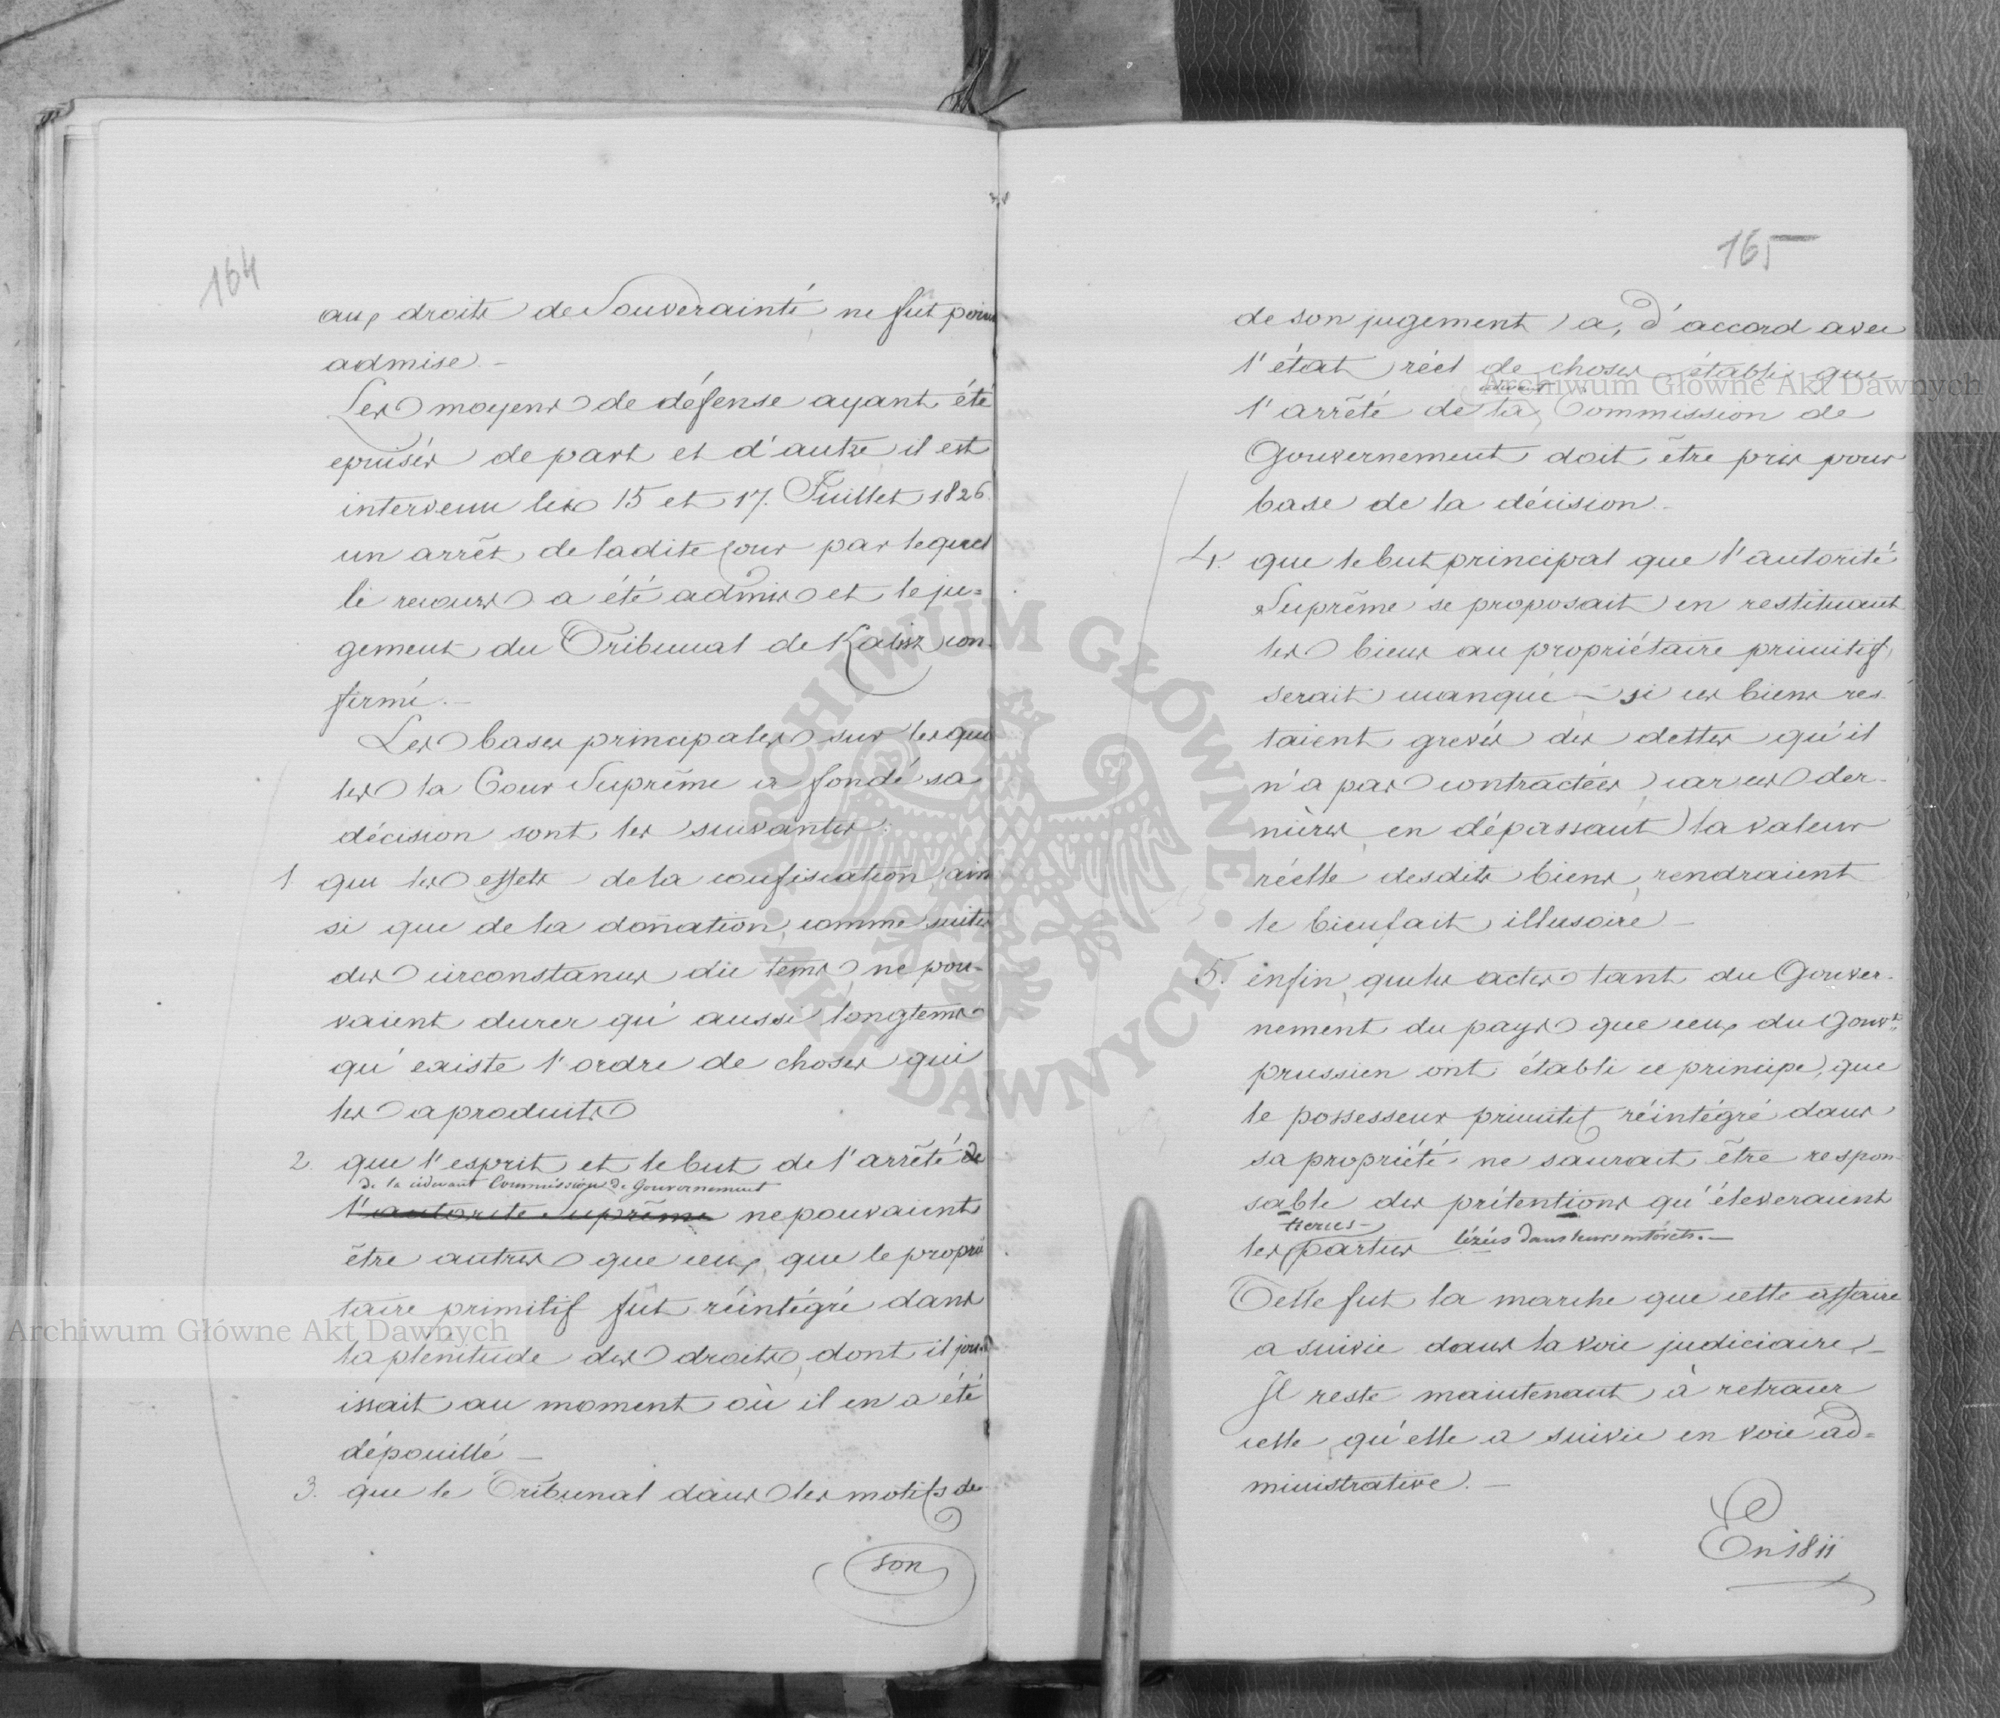 164
aux droits de Souverainté ne fut point
admise. –
Les moyens de défense ayant été
epuisés de part et d'autre il est
intervenu les 15 et 17. Juillet 1826
un arrêt de ladite Cour par lequel
le recours a été admis et le ju=
gement du Tribunal de Kalisz con-
firmé. –
Les bases principales sur lesquel
les la Cour Suprême a fondé sa
décision sont les suivantes:
1 que les effets de la confiscation ain
si que de la donnation, comme suites
des circonstances du tems, ne pou-
vaient durer qu'aussi longtems
qu'existe l'ordre de choses qui
les a produits
2. que l'esprit et le but de l'arrêté de
de la cidevant Commission de Gouvernement
l'autorité Suprême ne pouvaient
être autres que ceux, que le proprié
taire primitif fut réintégré dans
la plénitude des droits, dont il jou
issait au moment où il en a été
dépouillé –
3. que le Tribunal dans les motifs de
son
165
de son jugement a, d'accord avec
l'état réel de choses établi que
cidevant
l'arrêté de la Commission de
Gouvernement doit être pris pour
base de la décision. –
4. que le but principal que l'autorité
Suprême se proposait en restituant
les biens au propriétaire primitif,
serait manqué – si ces biens res
taient grevés des dettes qu'il
n'a pas contractées, car ces der-
nières en dépassant la valeur
réelle desdits biens, rendraient
le bienfait illusoire –
5. enfin, que les actes tant du Gouver-
nement du pays que ceux du Gouvt
prussien ont établi ce principe, que
le possesseur primitif réintégré dans
sa propriété ne saurait être respon-
sable des prétentions qu'éleveraient
tierces
les parties lésées dans leurs intérêts. –
Telle fut la marche que cette affaire
a suivie dans la voie judiciaire, –
Il reste maintenant à retracer
celle qu'elle a suivie en voie ad=
ministrative. –
En 1811
Archiwum Główne Akt Dawnych
Archiwum Główne Akt Dawnych
ARCHIWUM GŁÓWNE · AKT DAWNYCH ·